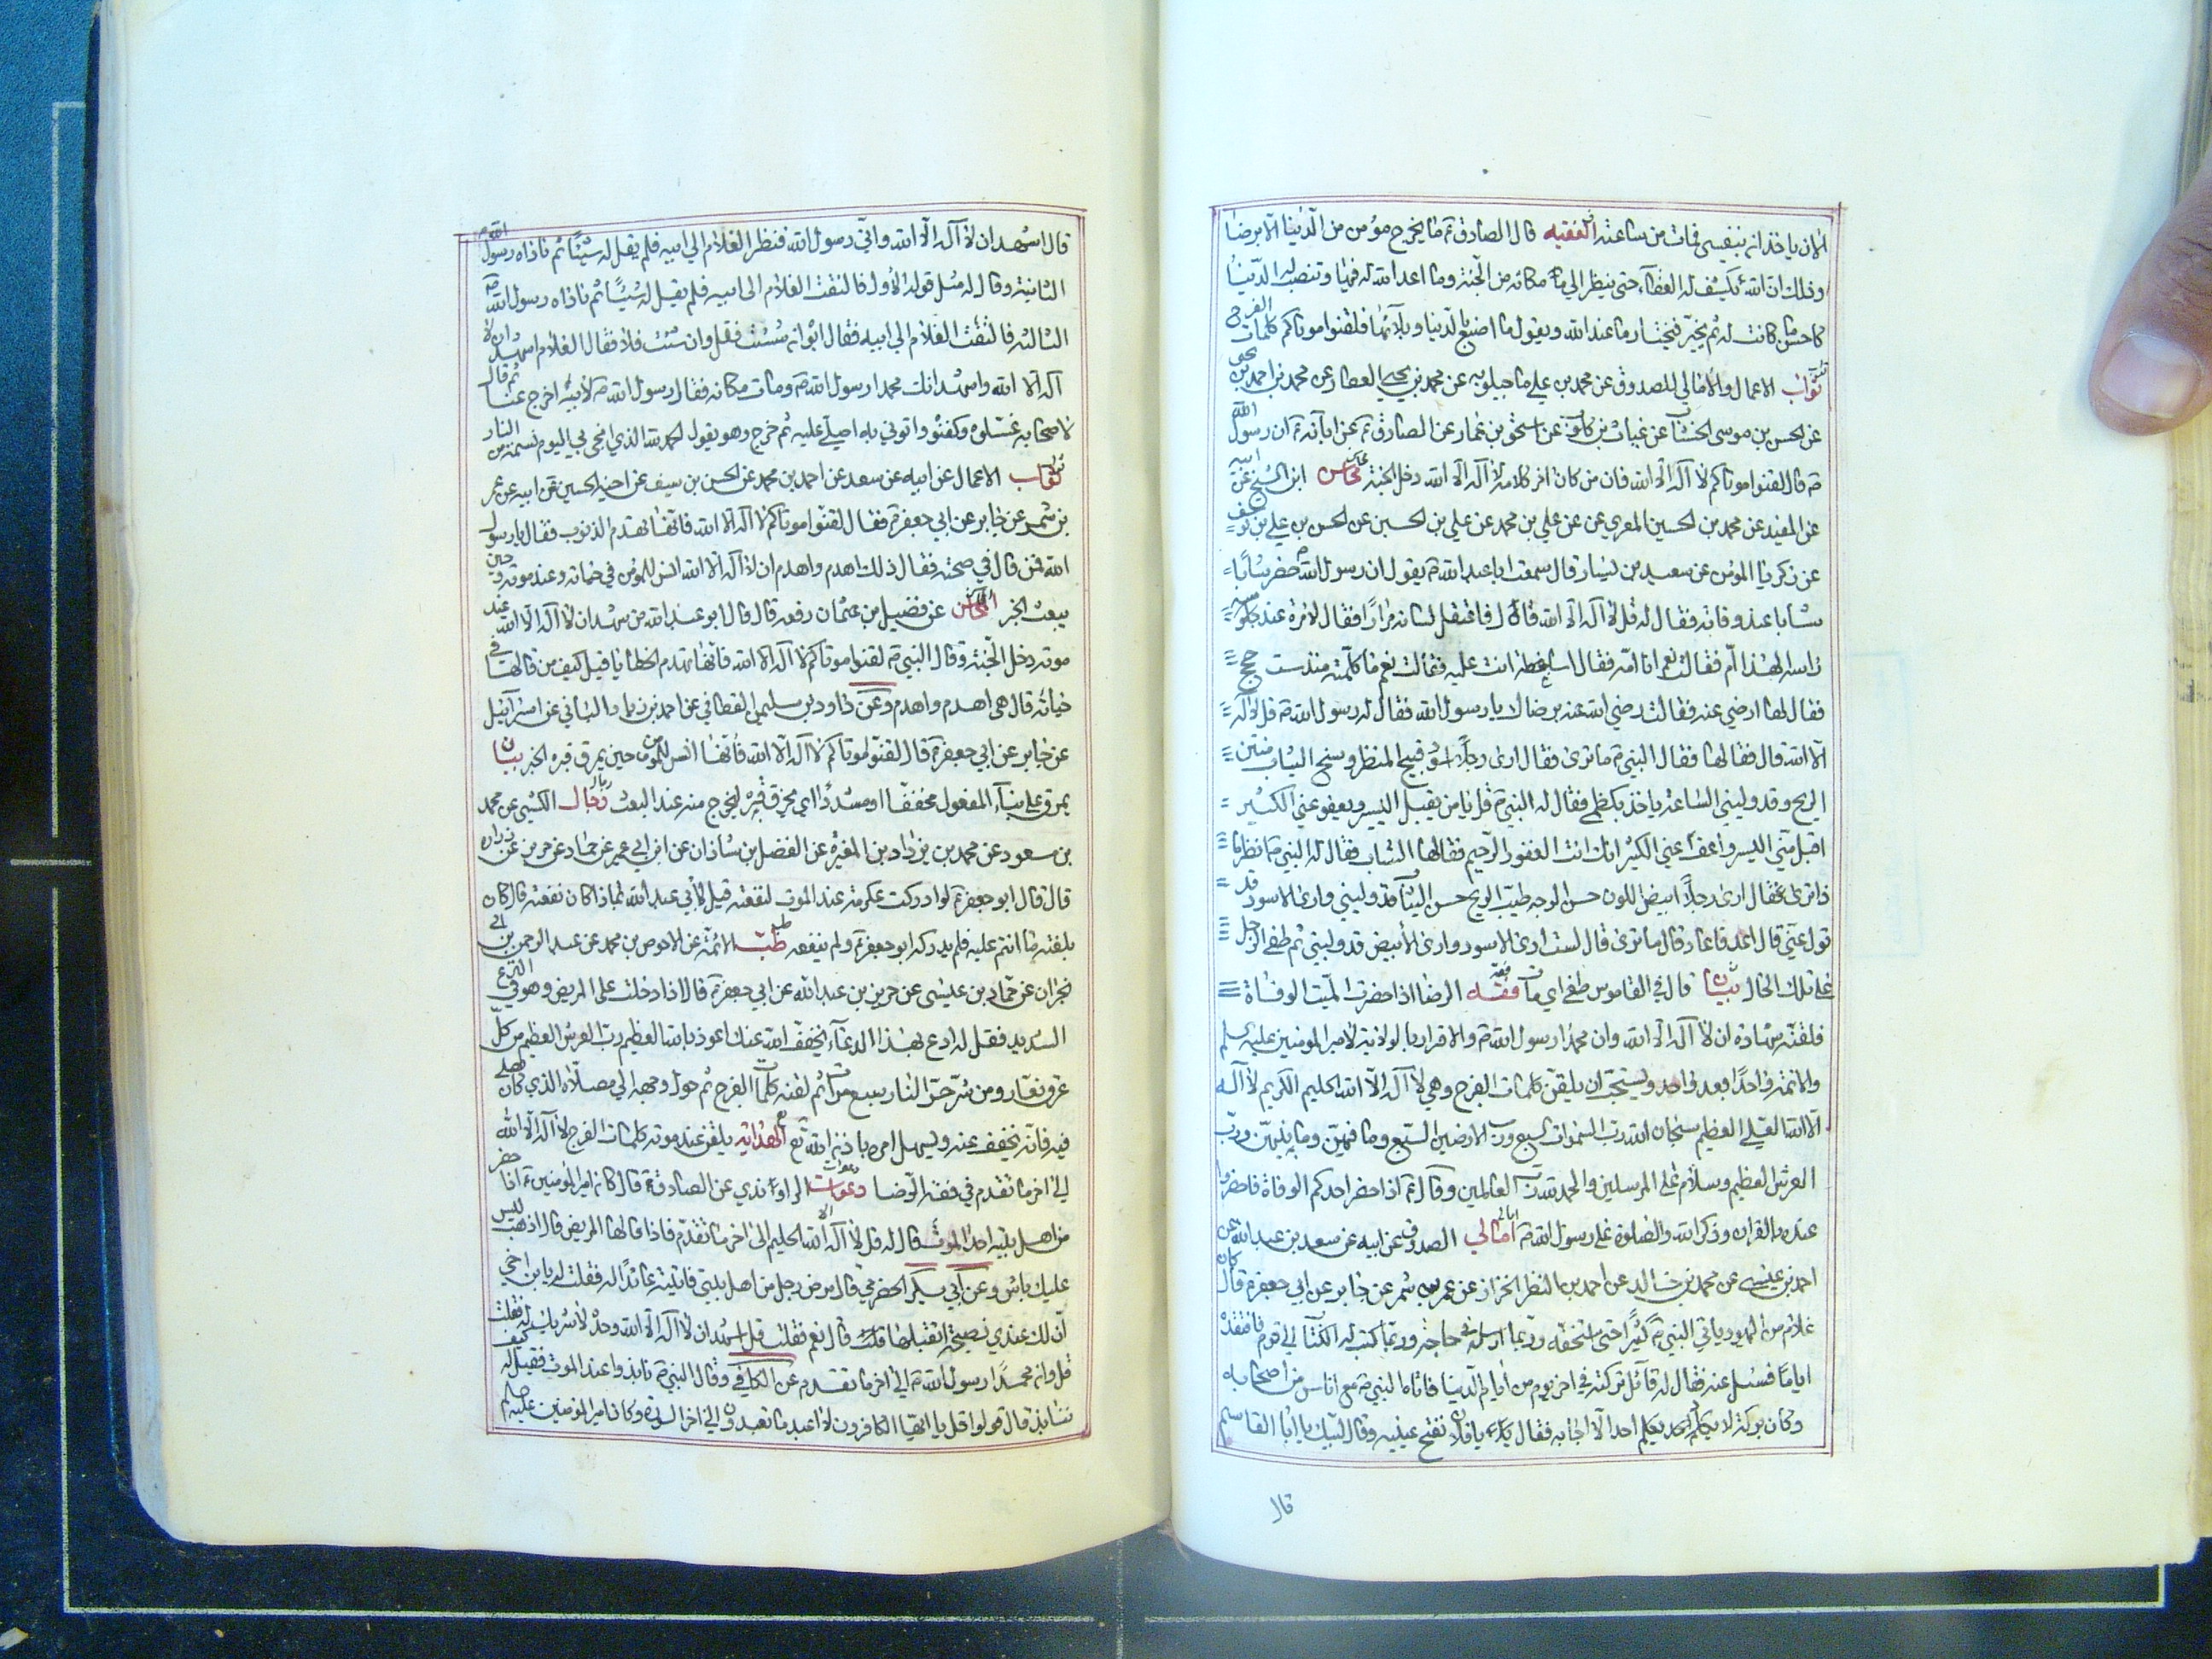 الان ياخذانه بنفسي فمات من ساعته الفقيه قال الصادق ع ما يخرج مؤمن من الدنيا الا برضا
وذلك ان الله يكشف له الغطاء حتى ينظر الى مكانه من الجنة وما اعد الله له فيها وتنصب له الدنيا
كاحسن ما كانت له ثم يخير فيختار ما عند الله ويقول ما اصنع بالدنيا وبلائها فلقنوا موتاكم كلمات الفرج
ثواب الاعمال والامالي للصدوق عن محمد بن علي ماجيلويه عن محمد بن يحيى العطار عن محمد بن احمد بن يحيى
عن الحسن بن موسى الخشاب عن غياث بن كلوب عن اسحق بن عمار عن الصادق ع عن ابائه ع ان رسول الله
ص قال لقنوا موتاكم لا اله الا الله فان من كان اخر كلامه لا اله الا الله دخل الجنة مجالس ابن الشيخ عن ابيه
عن المفيد عن محمد بن الحسين المقري عن علي بن محمد عن علي بن الحسين عن الحسن بن علي بن يوسف
عن زكريا المؤمن عن سعيد بن يسار قال سمعت ابا عبد الله ع يقول ان رسول الله ص حضر شابا
شابا عند وفاته فقال له قل لا اله الا الله قال فاعتقل لسانه مرارا فقال لامرأة عند
راسه لهذا ام فقالت نعم انا امه فقال اساخطة انت عليه فقالت نعم ما كلمته منذ ست حجج
فقال لها ارضي عنه فقالت رضي الله عنه برضاك يا رسول الله فقال له رسول الله ص قل لا اله
الا الله قال فقالها فقال النبي ص ما ترى فقال ارى رجلا اسود قبيح المنظر وسخ الثياب منتن
الريح وقد وليني الساعة ياخذ بكظمي فقال له النبي ص قل يا من يقبل اليسير ويعفو عن الكثير
اقبل مني اليسير واعف عني الكثير انك انت الغفور الرحيم فقالها الشاب فقال له النبي ص انظر ما
ذا ترى فقال ارى رجلا ابيض اللون حسن الوجه طيب الريح حسن الثياب قد وليني وارى الاسود قد
تولى عني قال اعد فاعاد قال ما ترى قال لست ارى الاسود وارى الابيض قد وليني ثم طفى الرجل
على تلك الحال بيان قال في القاموس طفى اي مات فقه الرضا اذا حضرت الميت الوفاة
فلقنه شهادة ان لا اله الا الله وان محمدا رسول الله ص والاقرار بالولاية لامير المؤمنين عليه السلام
والائمة واحدا بعد واحد ويستحب ان يلقن كلمات الفرج وهي لا اله الا الله الحليم الكريم لا اله
الا الله العلي العظيم سبحان الله رب السموات السبع ورب الارضين السبع وما فيهن وما بينهن ورب
العرش العظيم وسلام على المرسلين والحمد لله رب العالمين وقال ع اذا حضر احدكم الوفاة فاحضروا
عنده بالقران وذكر الله والصلوة على رسول الله ص امالي الصدوق عن ابيه عن سعد بن عبد الله عن
احمد بن عيسى عن محمد بن خالد عن احمد بن النضر الخزاز عن عمرو بن شمر عن جابر عن ابي جعفر ع قال كان
غلام من اليهود ياتي النبي ص كثيرا حتى استخفه وربما ارسله في حاجة وربما كتب له الكتاب الى قوم فافتقده
اياما فسئل عنه فقال له قائل تركته في اخر يوم من ايام الدنيا فاتاه النبي ص مع اناس من اصحابه
وكان بركة لا يكلم احدا الا اجابه فقال يا فلان ففتح عينيه وقال لبيك يا ابا القاسم
قال
قال اشهد ان لا اله الا الله واني رسول الله فنظر الغلام الى ابيه فلم يقل له شيئا ثم ناداه رسول الله
الثانية وقال له مثل قوله الاول فالتفت الغلام الى ابيه فلم يقل له شيئا ثم ناداه رسول الله ص
الثالثة فالتفت الغلام الى ابيه فقال ابوه ان شئت فقل وان شئت فلا فقال الغلام اشهد ان لا
اله الا الله واشهد انك محمدا رسول الله ص ومات مكانه فقال رسول الله ص لابيه اخرج عنا ثم قال
لاصحابه غسلوه وكفنوه واتوني به اصلي عليه ثم خرج وهو يقول الحمد لله الذي انجى بي اليوم نسمة من النار
ثواب الاعمال عن ابيه عن سعد عن احمد بن محمد عن الحسن بن سيف عن اخيه الحسين عن ابيه عن عمرو
بن شمر عن جابر عن ابي جعفر ع فقال لقنوا موتاكم لا اله الا الله فانها تهدم الذنوب فقال يا رسول
الله فمن قال في صحته فقال ذلك اهدم واهدم ان لا اله الا الله انس للمؤمن في حياته وعند موته وحين
يبعث الخبر المحاسن عن فضيل بن عثمان رفعه قال قال ابو عبد الله من شهد ان لا اله الا الله عند
موته دخل الجنة وقال النبي ص لقنوا موتاكم لا اله الا الله فانها تهدم الخطايا قيل كيف من قالها في
حياته قال هي اهدم واهدم وعن داود بن سليمان القطاني عن احمد بن زياد اليماني عن اسرائيل
عن جابر عن ابي جعفر ع قال لقنوا موتاكم لا اله الا الله فانها انس للمؤمن حين يمرق قبره الخبر بيان
يمرق على بناء المفعول مخففا او مشددا اي يخرق قبره ليخرج منه عند البعث رجال الكشي عن محمد
بن مسعود عن محمد بن يزداد بن المغيرة عن الفضل بن شاذان عن ابن ابي عمير عن حماد عن حريز عن زرارة
قال قال ابو جعفر ع لو ادركت عكرمة عند الموت لنفعته قيل لابي عبد الله بماذا كان ينفعه قال كان
يلقنه ما انتم عليه فلم يدركه ابو جعفر ع ولم ينفعه طب الائمة عن الاحوص بن محمد عن عبد الرحمن بن ابي
نجران عن حماد بن عيسى عن حريز بن عبد الله عن ابي جعفر ع قال اذا دخلت على المريض وهو في النزع
الشديد فقل له ادع بهذا الدعاء يخفف الله عنك اعوذ بالله العظيم رب العرش العظيم من كل
عرق نعار ومن شر حر النار سبع مرات ثم لقنه كلمات الفرج ثم حول وجهه الى مصلاه الذي كان يصلي
فيه فانه يخفف عنه ويسهل امره باذن الله تع الهداية يلقن عند موته كلمات الفرج لا اله الا الله
الى اخر ما تقدم في فقه الرضا دعوات الراوندي عن الصادق ع قال كان امير المؤمنين ع اذا حضر
من اهل بيته احدا الموت قال له قل لا اله الا الله الحليم الى اخر ما تقدم فاذا قالها المريض قال اذهب ليس
عليك باس وعن ابي بكر الحضرمي قال مرض رجل من اهل بيتي فاتيته عائدا له فقلت له يا بن اخي
ان لك عندي نصيحة اتقبلها قال نعم فقلت قل اشهد ان لا اله الا الله وحده لا شريك له فقلت
قل وان محمدا رسول الله ص الى اخر ما تقدم عن الكافي وقال النبي ص نابذوا عند الموت فقيل له كيف
ننابذ قال قولوا قل يا ايها الكافرون لا اعبد ما تعبدون الى اخر السورة وكان امير المؤمنين عليه السلام